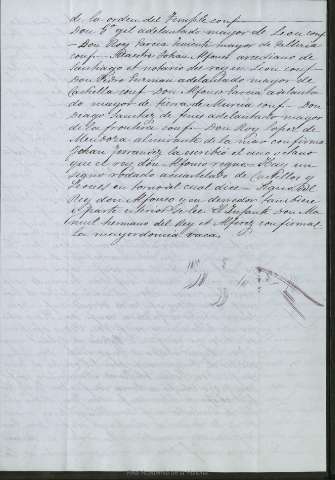 de la orden del Temple conf—
Don Gº gil adelantado mayor de Leon conf-
- Don Roy Garcia mayor de Gallicia
conf— Maestre Johan Alfonso arcediano de
Santiago et notario del rey en Leon conf-
Don Pedro Guzman adelantado mayor de
Castiella conf- Don Alfonso Garcia adelanta
do mayor de tierra de Murcia conf- Don
Diago Sanchez de fines adelantado mayor
de la frontera conf- Don Roy Lopez de
Mendoza almirante de la mar confirma
Johan Ferrandez la escribio el anno
que el rey don Alfonso regno- Hay un
signo rodado acuartelado de Castillos y
Leones en torno del cual dice- Signo del
Rey don Alfonso y en derredor tambien
y parte esterior se lee El Infante don Ma
nuel hermano del Rey et Alferez confirma
La mayordomia vaca.
Real Academia de la Historia